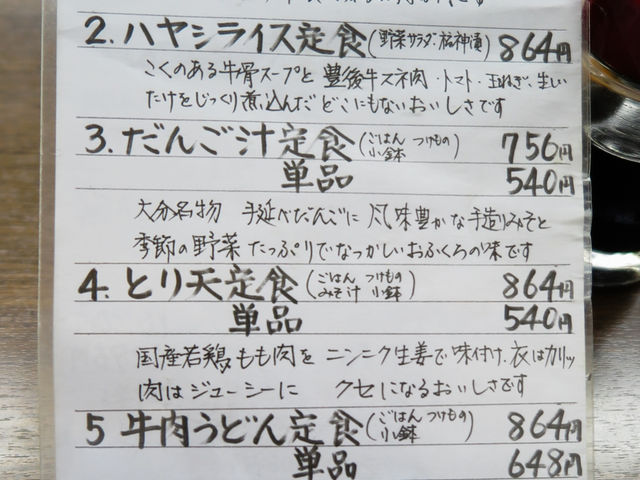 2. ハヤシライス定食(野菜サラダ・福神漬) 864円
こくのある牛骨スープと 豊後牛スネ肉・トマト・玉ねぎ・生しい
たけをじっくり煮込んだ どこにもないおいしさです
3. だんご汁定食(ごはん つけもの 小鉢) 756円
単品 540円
大分名物 手延べだんごに 風味豊かな手造りみそと
季節の野菜 たっぷりでなつかしいおふくろの味です
4. とり天定食(ごはん つけもの みそ汁 小鉢) 864円
単品 540円
国産若鶏もも肉を ニンニク生姜で味付け、衣はカリッ
肉はジューシーに クセになるおいしさです
5 牛肉うどん定食(ごはん つけもの 小鉢) 864円
単品 648円